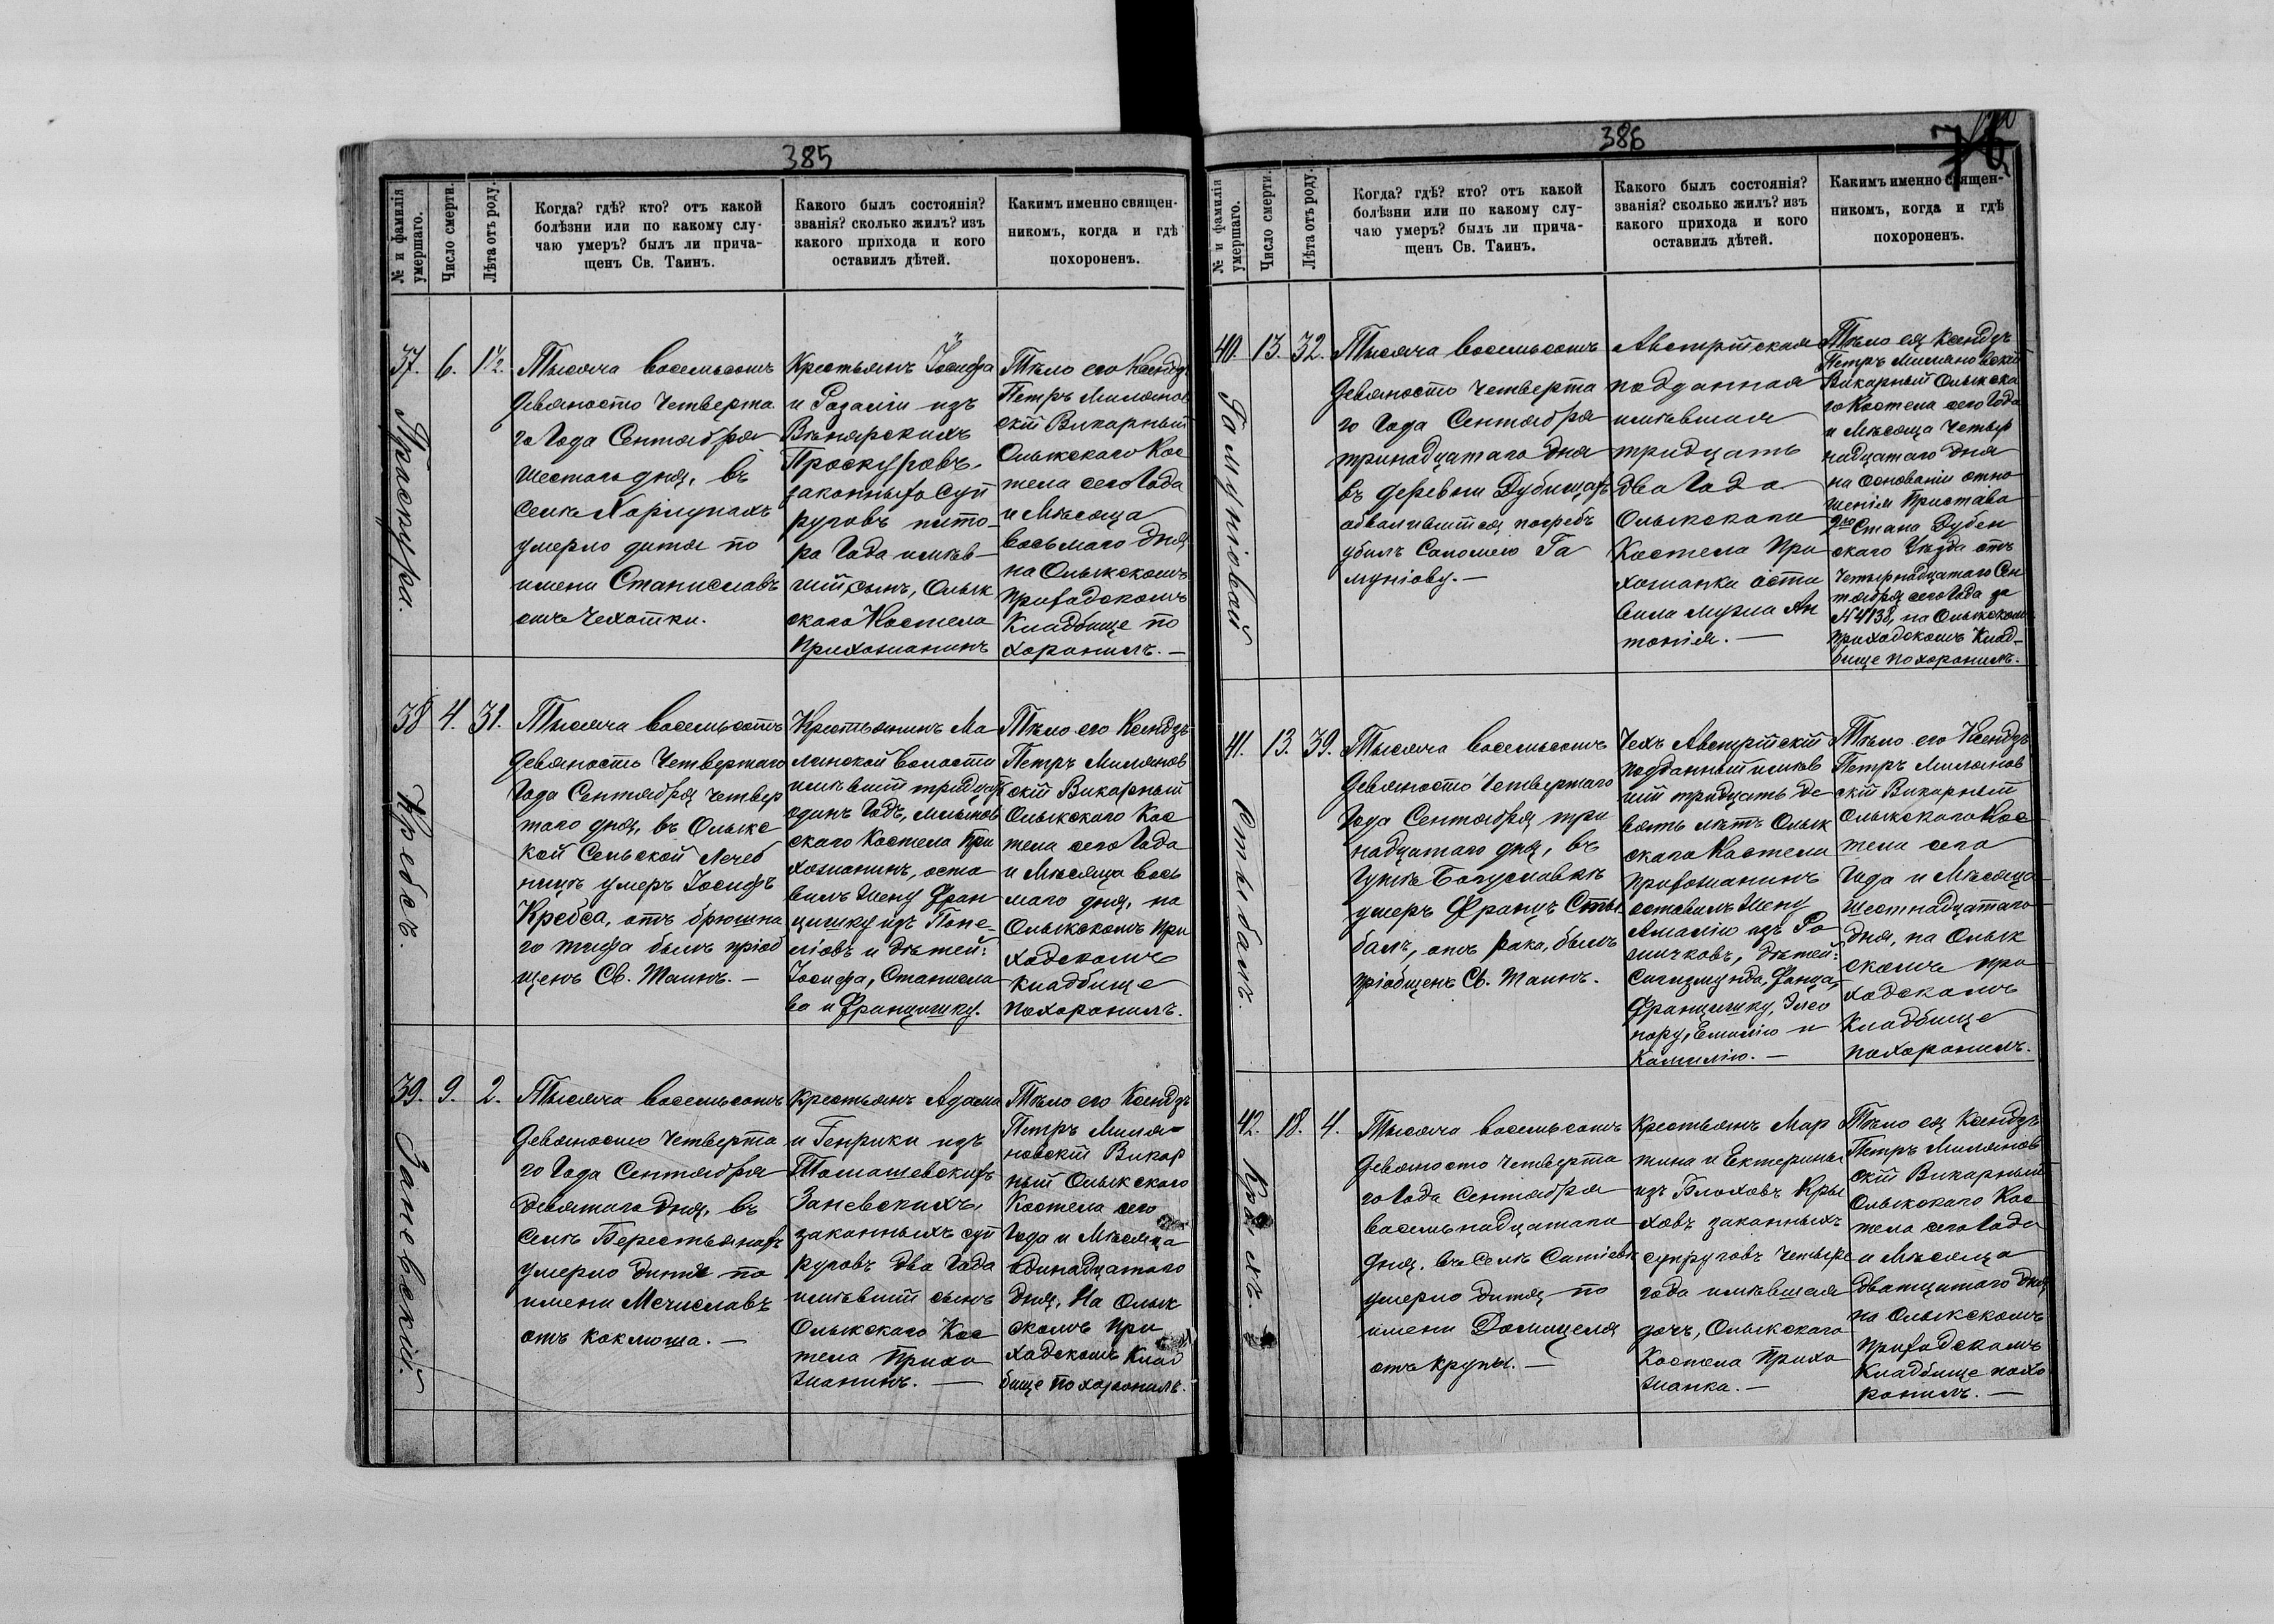 385
№ и фамилія
умершаго.
Число смерти.
Лѣта отъ роду.
Когда? гдѣ? кто? отъ какой
болѣзни или по какому слу-
чаю умеръ? былъ ли прича-
щенъ Св. Таинъ.
Какого былъ состоянія?
званія? сколько жилъ? изъ
какого прихода и кого
оставилъ дѣтей.
Какимъ именно священ-
никомъ, когда и гдѣ
похороненъ.
37.
Праскура.
6.
1½.
Тысяча восемьсотъ
девяносто четверта
го года Сентября
шестого дня, въ
селѣ Хорлупахъ
умерло дитя по
имени Станиславъ
отъ чехотки.
Крестьянъ Іосифа
и Розаліи изъ
Вѣнярскихъ
Проскуровъ,
законныхъ суп
руговъ полто-
ра года имѣв-
шій сынъ, Олык
скаго Костела
прихожанинъ
Тѣло его Ксендзъ
Петръ Милянов
скій Викарный
Олыкскаго Кос
тела сего года
и мѣсяца
восьмаго дня
на Олыкскомъ
приходскомъ
кладбище по
хоронилъ.—
38
Кребсъ.
4.
31.
Тысяча восемьсотъ
девяносто четвертаго
года Сентября четвер
таго дня, въ Олыкс
кой Сельской лечеб
ницѣ умеръ Іосифъ
Кребса, отъ брюшна
го тифа былъ пріоб
щенъ Св. Таинъ.—
Крестьянинъ Ма
линской волости
имѣвшій тридцать
одинъ годъ, Млынов
скаго Костела при
хожанинъ, оста
вилъ жену Фран
цишку изъ Попе-
ліовъ и дѣтей:
Іосифа, Станисла
ва и Францишку.
Тѣло его Ксендзъ
Петръ Милянов
скій Викарный
Олыкскаго Кос
тела сего года
и мѣсяца вось
маго дня, на
Олыкскомъ при
ходскомъ
кладбище
похоронилъ.
39.
Заневскій.
9.
2.
Тысяча восемьсотъ
девяносто четверта
го года Сентября
девятаго дня, въ
селѣ Берестьянахъ
умерло дитя по
имени Мечиславъ
отъ коклюша.—
Крестьянъ Адама
и Генрики изъ
Томашевскихъ
Заневскихъ,
законныхъ суп
руговъ два года
имѣвшій сынъ
Олыкскаго Кос
тела прихо
жанинъ.—
Тѣло его Ксендзъ
Петръ Миля-
новскій Викар
ный Олыкскаго
Костела сего
года и мѣсяца
одинадцатаго
дня, на Олык
скомъ при
ходскомъ клад
бище похоронилъ.
386
№ и фамилія
умершаго.
Число смерти.
Лѣта отъ роду.
Когда? гдѣ? кто? отъ какой
болѣзни или по какому слу-
чаю умеръ? былъ ли прича-
щенъ Св. Таинъ.
Какого былъ состоянія?
званія? сколько жилъ? изъ
какого прихода и кого
оставилъ дѣтей.
Какимъ именно священ-
никомъ, когда и гдѣ
похороненъ.
40.
Гамуніовой
13.
32.
Тысяча восемьсотъ
девяносто четверта
го года Сентября
тринадцатаго дня
въ деревни Дубищахъ
обвалившійся погребъ
убилъ Саломею Га
муніову.—
Австрійская
подданная
имѣвшая
тридцать
два года
Олыкскаго
Костела при
хожанки оста
вила мужа Ан
тонія.—
Тѣло ея Ксендзъ
Петръ Миляновскій
Викарный Олыкска
го Костела сего года
и мѣсяца четыр
надцатаго дня
на основаніи отно
шенія Пристава
2го Стана Дубен
скаго Уѣзда отъ
четырнадцатаго Сен
тября сего года за
N 4138, на Олыкскомъ
приходскомъ клад-
бище похоронилъ.
41.
Стыбалъ.
13.
39.
Тысяча восемьсотъ
девяносто четвертаго
года Сентября три
надцатаго дня, въ
гутѣ Богуславкѣ
умеръ Францъ Сты
балъ, отъ рака, былъ
пріобщенъ Св. Таинъ.
Чехъ Австрійскій
подданный имѣв
шій тридцать де
вять лѣтъ Олык
скаго Костела
прихожанинъ
оставилъ жену
Амалію изъ Ро
личковъ, дѣтей:
Сигизмунда, Франца,
Францишку, Элео
нору, Емилію и
Камилію.—
Тѣло его Ксендзъ
Петръ Милянов
скій Викарный
Олыкскаго Кос
тела сего
года и мѣсяца
шестнадцатаго
дня, на Олык
скомъ при
ходскомъ
кладбище
похоронилъ.
42.
18.
4.
Тысяча восемьсотъ
девяносто четверта
го года Сентября
восемьнадцатаго
дня, въ селѣ Сатіевѣ
умерло дитя по
имени Домицеля
отъ крупы.—
Крестьянъ Мар
тина и Екатерины
изъ Блоховъ Кры
ховъ законныхъ
супруговъ четыре
года имѣвшая
дочь, Олыкскаго
Костела прихо
жанка.—
Тѣло ея Ксендзъ
Петръ Милянов
скій Викарный
Олыкскаго Кос
тела сего года
и мѣсяца
двадцатаго дня
на Олыкскомъ
приходскомъ
кладбище похо
ронилъ.—